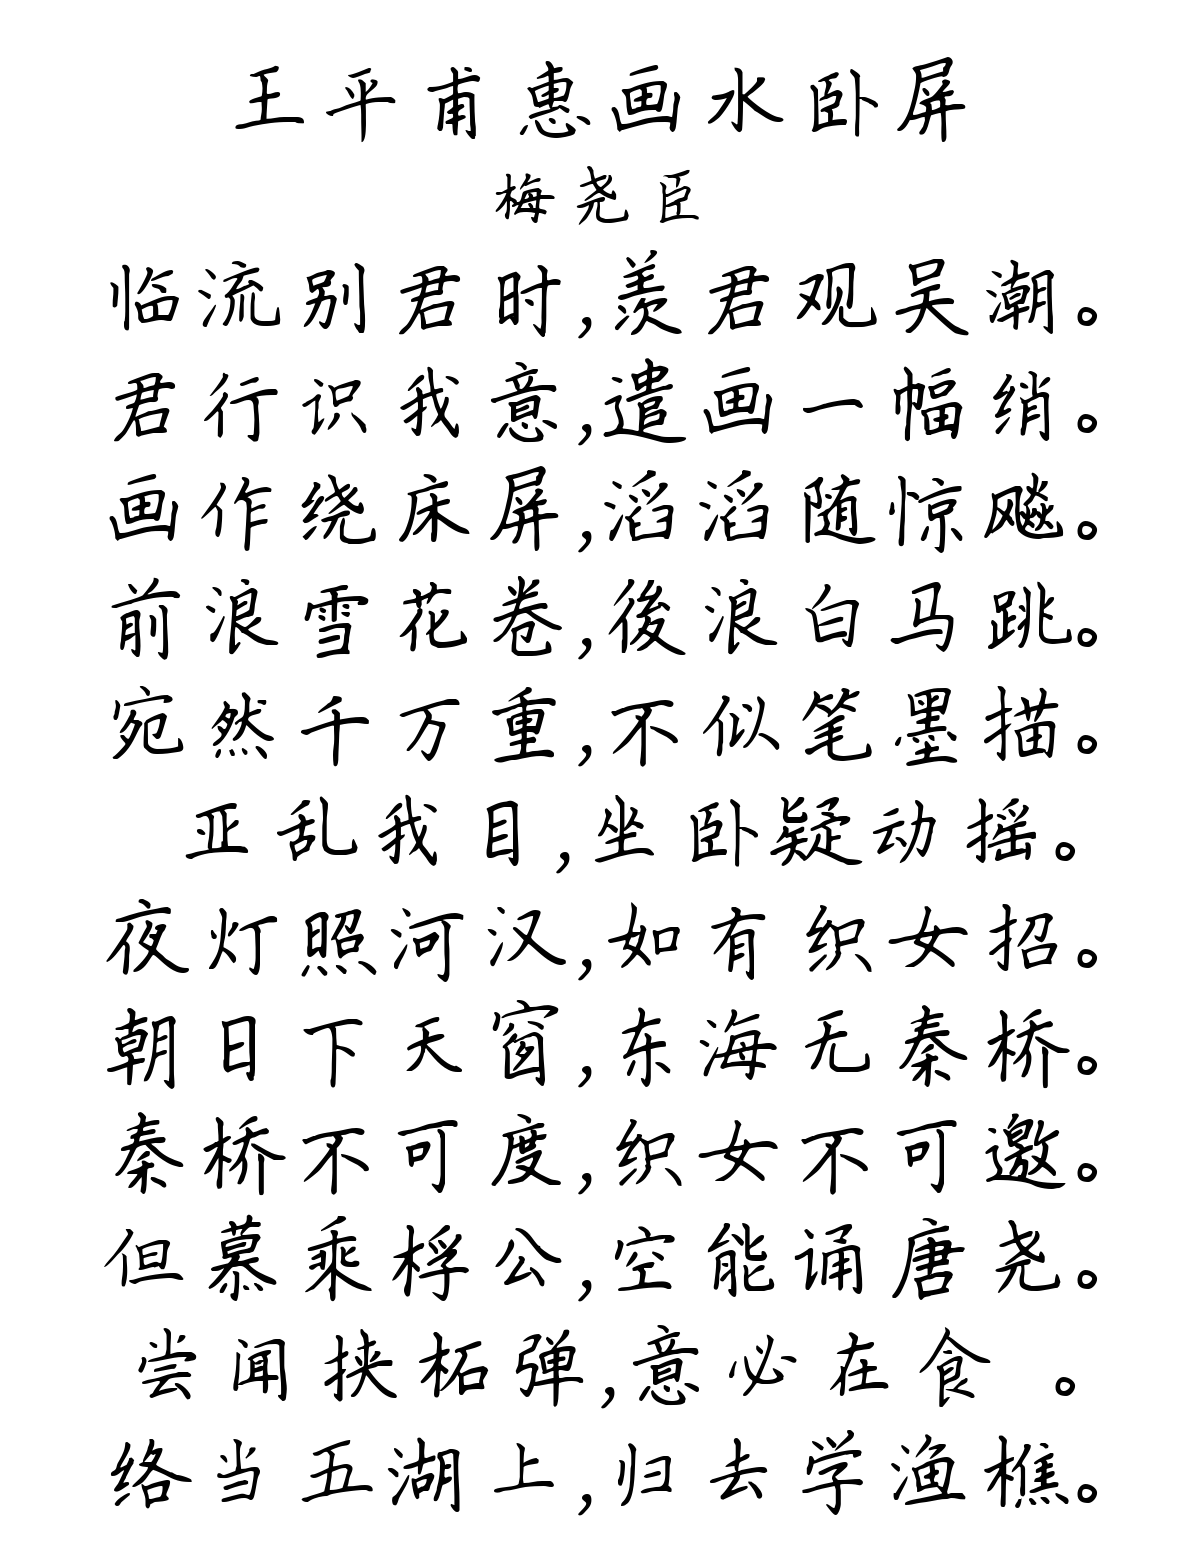 王平甫惠画水卧屏
梅尧臣
临流别君时,羡君观吴潮。
君行识我意,遣画一幅绡。
画作绕床屏,滔滔随惊飚。
前浪雪花卷,後浪白马跳。
宛然千万重,不似笔墨描。
亚乱我目,坐卧疑动摇。
夜灯照河汉,如有织女招。
朝日下天窗,东海无秦桥。
秦桥不可度,织女不可邀。
但慕乘桴公,空能诵唐尧。
尝闻挟柘弹,意必在食 。
络当五湖上,归去学渔樵。